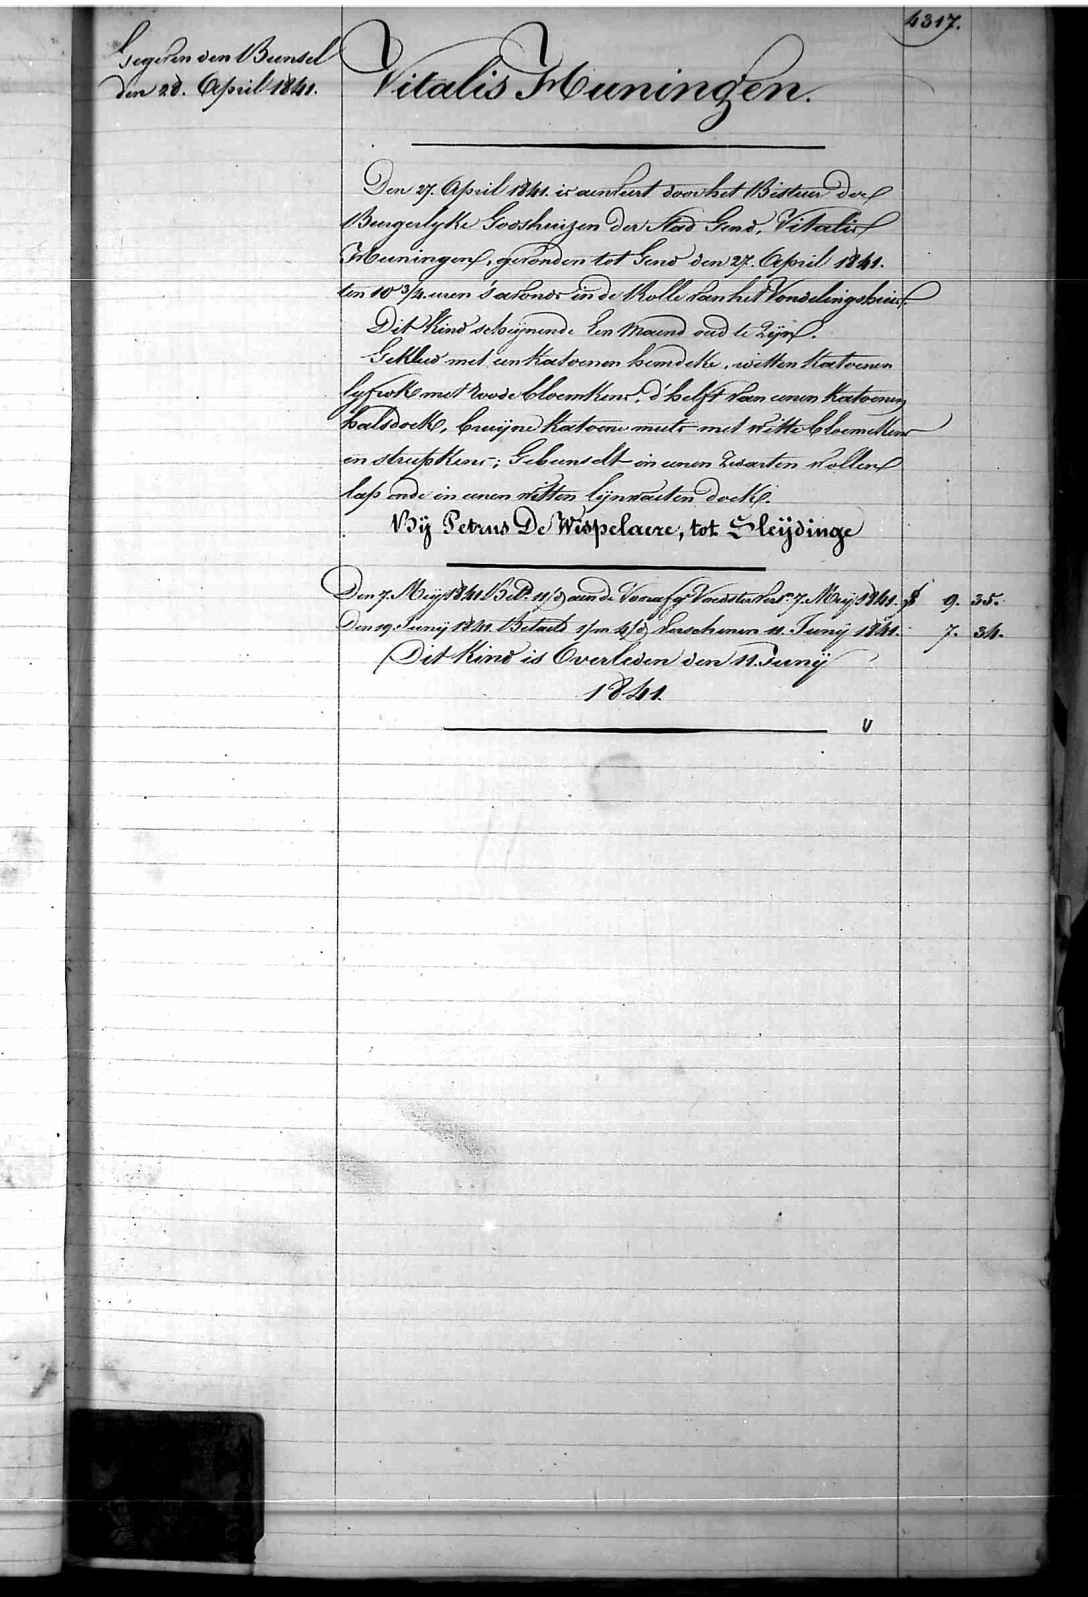 4317.
Gegeven den Bunsel
den 28. April 1841.
Vitalis Huningen.
Den 27. April 1841. is aenveert door het Bestuer der
Burgerlyke Godshuizen der Stad Gend, Vitalis
Huningen, gevonden tot Gend den 27. April 1841.
ten 10 3/4 uren 's avonds in de Rolle van het Vondelingshuis
Dit Kind schijnende Een Maend oud te Zijn.
Gekleed met een Katoenen hemdeke, witten Katoenen
lyfrok met roode bloemkens, d'helft van eenen Katoenen
halsdoek, bruijne Katoene muts met witte bloemekens
en streepkens; Gebunselt in eenen Zwarten wollen
lap ende in eenen witten lijnwaeten doek.
Bÿ Petrus De Wispelaere, tot Sleÿdinge
Den 7. Meij 1841. Bet. aen de Voedster 7. Meij 1841. 9. 35.
Den 19. Junij 1841. Betaeld Verschenen 11. Junij 1841. 7. 34.
Dit Kind is Overleden den 11. Junÿ
1841.